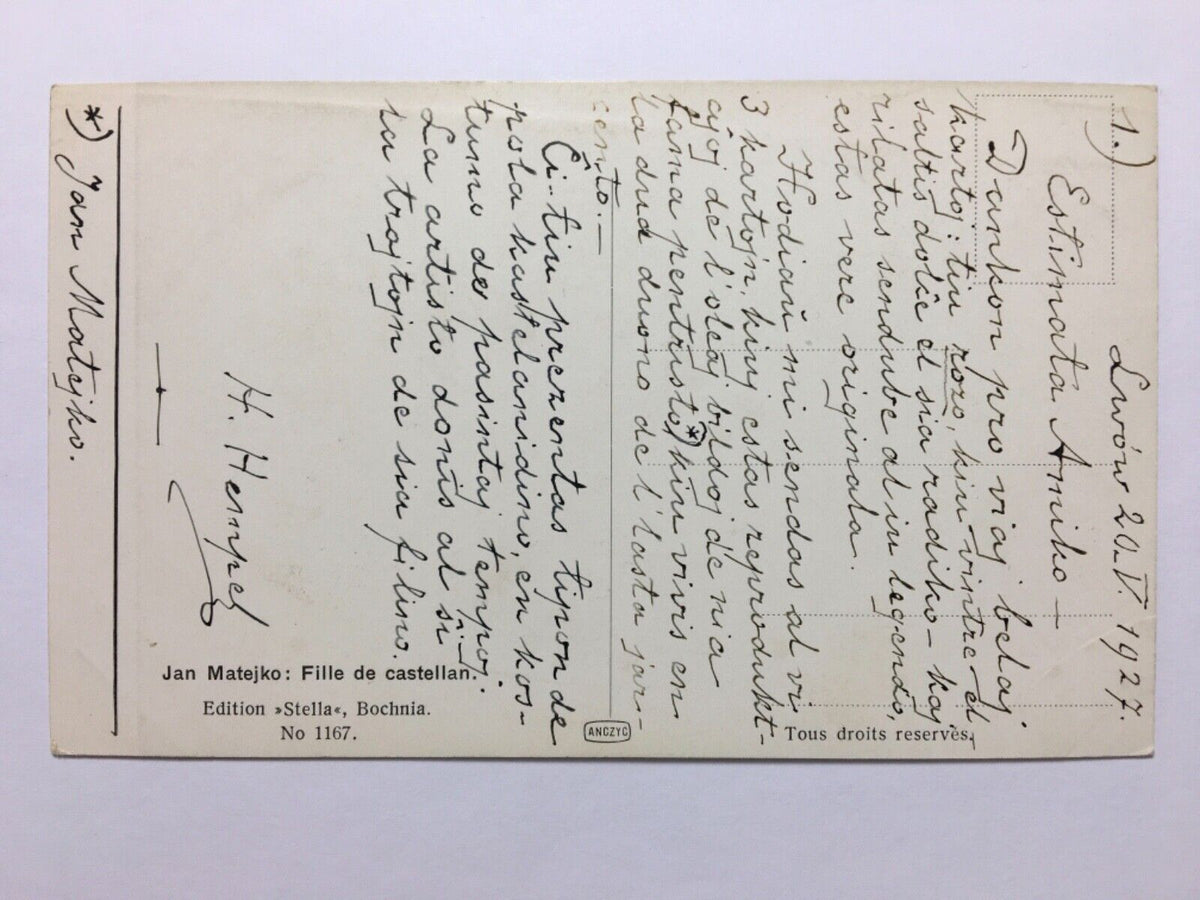 1.) Lwów 20.V. 1927.
Estimata Amiko —
Dankon pro viaj belaj
kartoj: tiu rozo, kiu vintre el-
saltis dolĉe el sia radiko – kaj
rilatas sendube al iu legendo,
estas vere originala.
Hodiaŭ mi sendas al vi
3 kartojn, kiuj estas reprodukt-
aĵoj de l'oleaj bildoj de nia
fama pentristo*) kiu vivis en
la dua duono de l'lasta jar-
cento.—
Ĉi-tiu prezentas tipon de
pola kastelanidino, en kos-
tumo de pasintaj tempoj.
La artisto donis al ŝi
la trajtojn de sia filino.
H. Hempel
*) Jan Matejko.
Jan Matejko: Fille de castellan.
Edition »Stella«, Bochnia.
No 1167.
ANCZYC
Tous droits reservés.